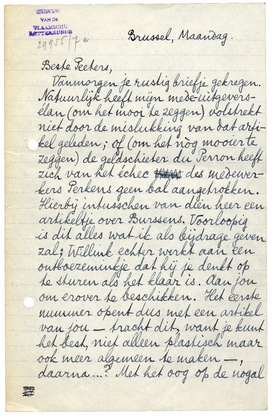 MUSEUM
VAN DE
VLAAMSCHE
LETTERKUNDE
29955/7a
Brussel, Maandag.
Beste Peeters,
Vanmorgen je rustig briefje gekregen.
Natuurlijk heeft mijn mede-uitgevers-
elan (om het mooi te zeggen) volstrekt
niet door de mislukking van bat arti-
kel geleden; of (om het nòg mooier te
zeggen) de geldschieter du Perron heeft
zich van het échec des medewer-
kers Perkens geen bal aangetrokken.
Hierbij intusschen van dien heer een
artikeltje over Burssens. Voorloopig
is dit alles wat ik als bijdrage geven
zal; Willink echter werkt aan een
ontboezeminkje dat hij je denkt op
te sturen als het klaar is. Aan jou
om erover te beschikken. Het eerste
nummer opent dus met een artikel
van jou — tracht dit, want je kunt
het best, niet alleen plastisch maar
ook meer algemeen te maken —,
daarna....? Met het oog op de nogal